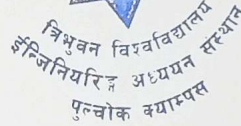 त्रिभुवन विश्वविद्यालय
ईन्जिनियरिङ्ग अध्ययन संस्थान
पुल्चोक क्याम्पस